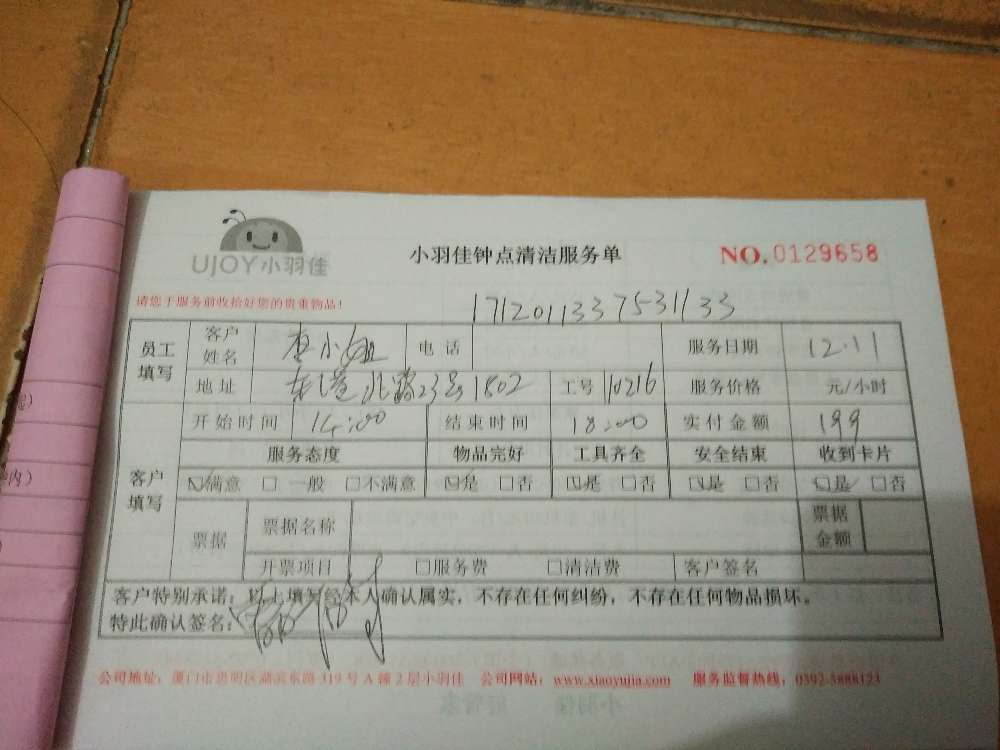 UJOY小羽佳
小羽佳钟点清洁服务单
NO.0129658
请您于服务前收拾好您的贵重物品!
1712011337531133
员工填写 客户姓名 小姐 电话 服务日期 12.11
地址 北路23号1802 工号 10216 服务价格 元/小时
客户填写 开始时间 14:00 结束时间 18:00 实付金额 199
服务态度 物品完好 工具齐全 安全结束 收到卡片
☑满意 □一般 □不满意 ☑是 □否 ☑是 □否 ☑是 □否 ☑是 □否
票据 票据名称 票据金额
开票项目 □服务费 □清洁费 客户签名
客户特别承诺：以上填写经本人确认属实，不存在任何纠纷，不存在任何物品损坏。
特此确认签名：
公司地址：厦门市思明区湖滨东路319号A幢2层小羽佳 公司网站：www.xiaoyujia.com 服务监督热线：0592-5888123